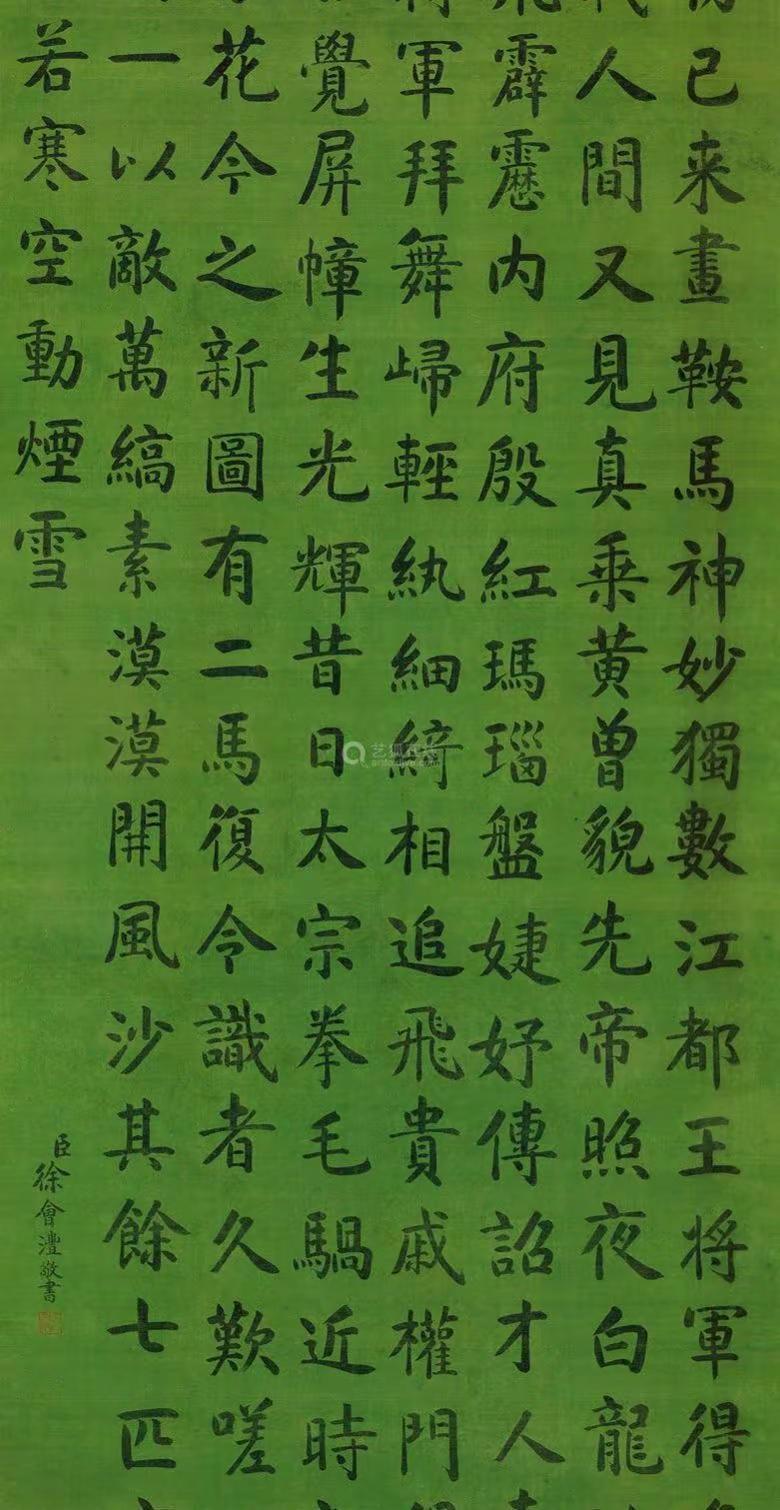 已来畫鞍馬神妙獨數江都王将軍得
人間又見真乗黄曾貌先帝照夜白龍
霹靂内府殷紅瑪瑙盤婕妤傳詔才人
軍拜舞歸輕紈細綺相追飛貴戚權門
覺屏幛生光輝昔日太宗拳毛騧近時
花今之新圖有二馬復令識者久歎嗟
一以敵萬縞素漠漠開風沙其餘七匹
若寒空動煙雪
臣徐會灃敬書